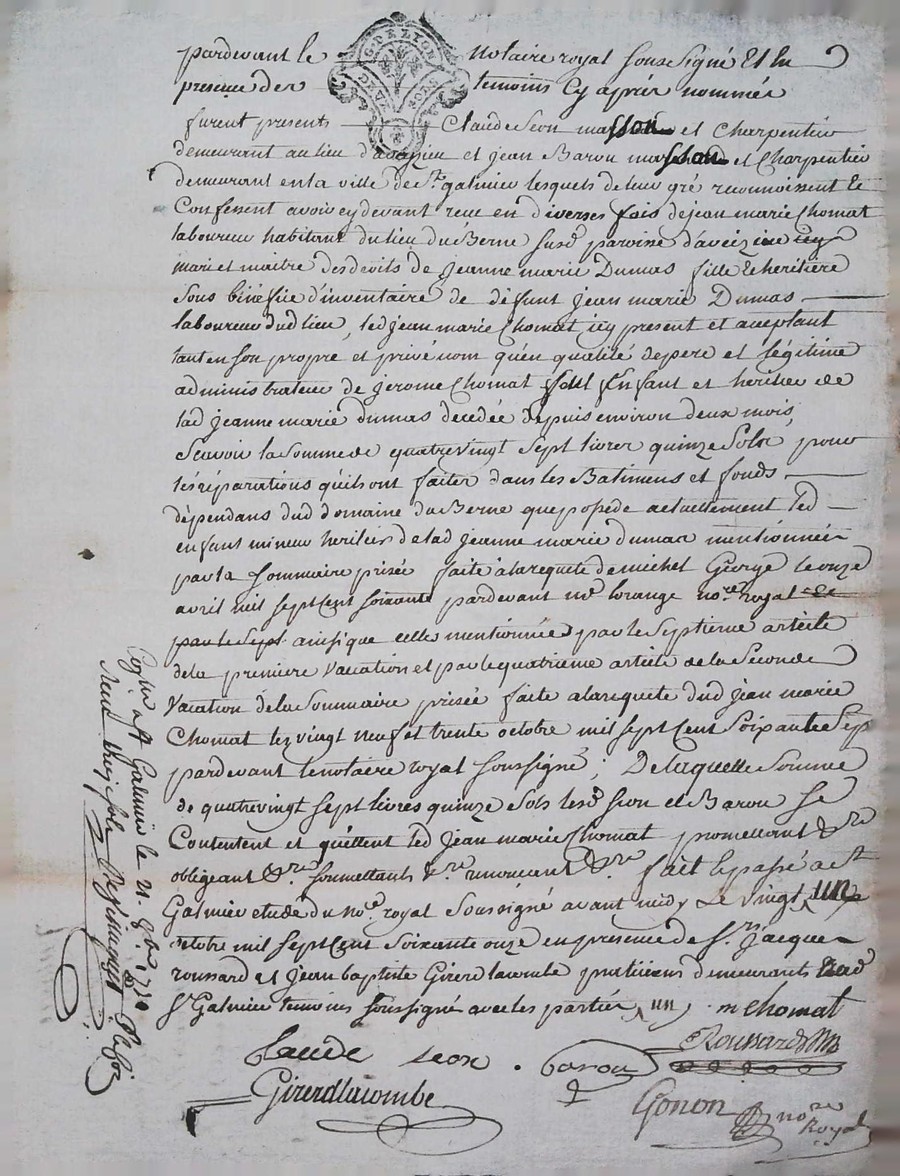 pardevant le notaire royal soussigné Et En
presence des temoins Cy aprés nommés
G. DE LYON
furent presents Claude Seon masson et Charpentier
demeurant au lieu d'avezieu et jean Barou masson et Charpentier
demeurant en la ville de St. galmier lesquels de leur gré reconnoissent Et
Confessent avoir cy devant receu en diverses fois de jean marie Chomat
laboureur habitant du lieu du Berne susd. paroisse d'aveizieu icy
mari et maitre des droits de Jeanne marie Dumas fille Et heritiere
sous bénéfice d'inventaire de défunt jean marie Dumas
laboureur dud lieu, led jean marie Chomat icy present et acceptant
tant en son propre et privé nom qu'en qualité de pere et légitime
administrateur de jerome Chomat son Enfant et heritier de
lad jeanne marie dumas decedée depuis environ deux mois,
Scavoir la Somme de quatrevingt Sept livres quinze Sols, pour
les réparations qu'ils ont faites dans les Batimens et fonds
dépendans dud domaine du Berne que possede actuellement led
enfant mineur heritier de lad jeanne marie dumas mentionnées
par la Sommaire prisée faite a la requete de michel George le onze
avril mil sept cent soixante pardevant me. lorange nore. royal Et
par le Sept ainsi que celles mentionnées par le Septieme article
de la premiere vacation et par le quatrieme article de la Seconde
vacation de la Sommaire prisée faite a la requete dud jean marie
Chomat les vingt neuf et trente octobre mil sept Cent Soixante Sept
pardevant le notaire royal soussigné; De laquelle Somme
de quatrevingt sept livres quinze Sols lesd. Seon et Barou Se
Contentent et quittent led jean marie Chomat promettant &re
obligeant &re soumettants &re renoncent &re fait et passé a St
Galmier etude du nore. royal Soussigné avant midy Le vingt un
octobre mil sept Cent Soixante onze en presence de Srs. jacque
roussard et jean baptiste Girerd lacombe praticiens demeurants aud
St. Galmier temoins soussigné avec les parties, un, m Chomat
Roussard
Claude seon . barou
Girerdlacombe
Gonon nore
Royal